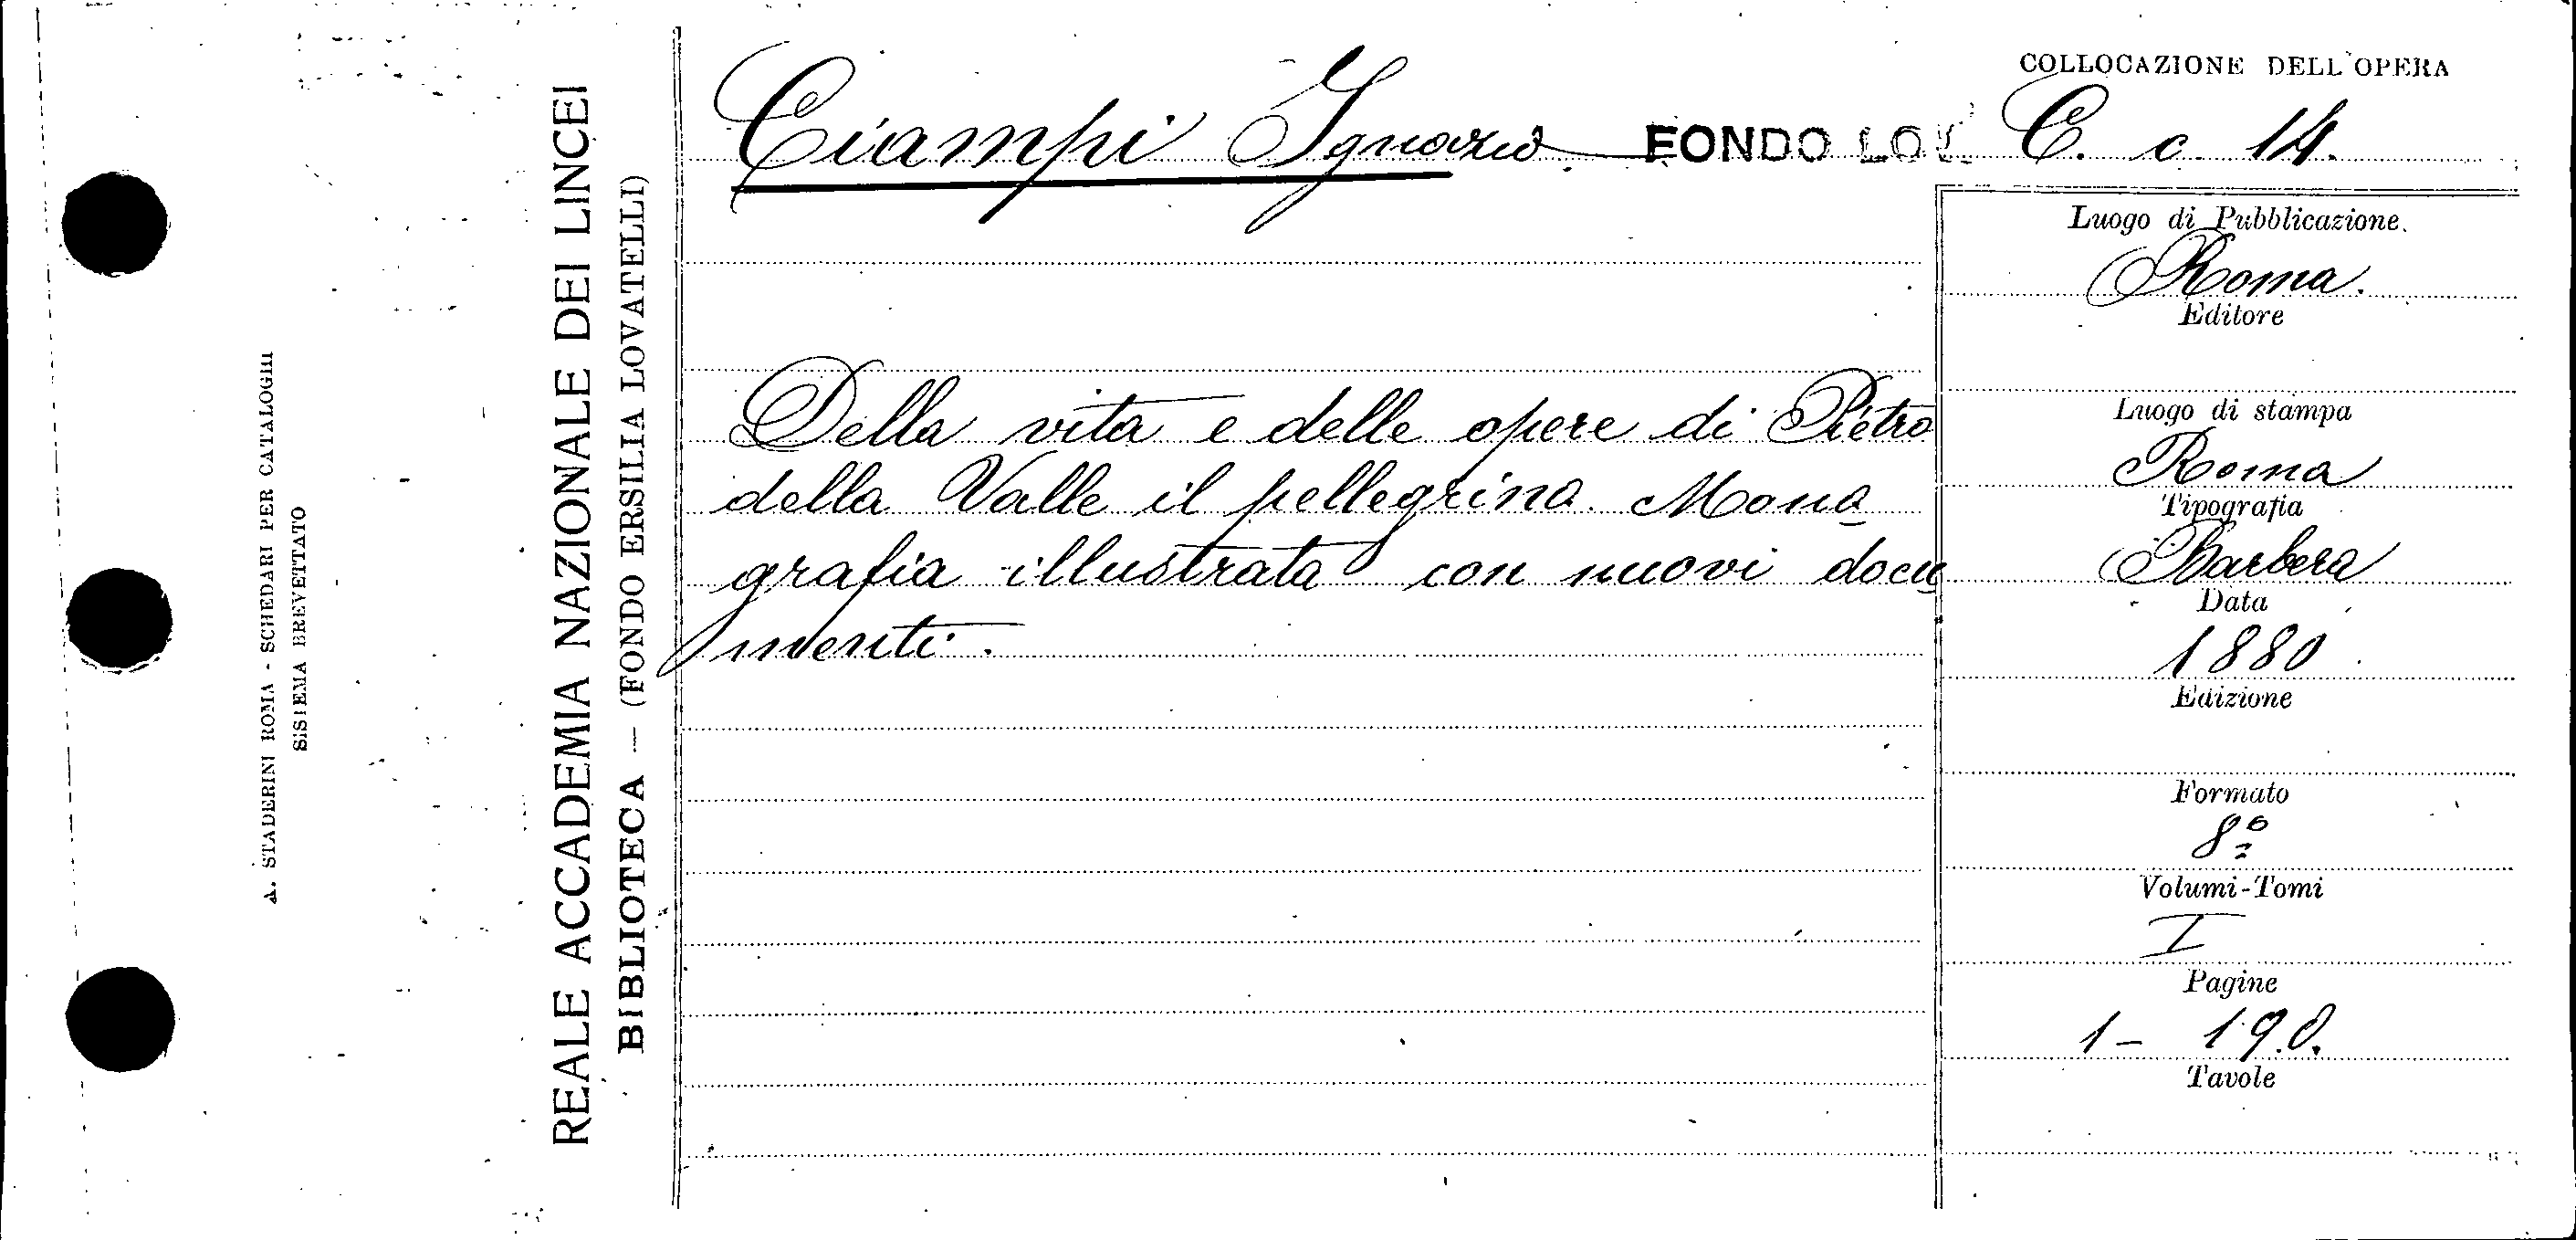 A. STADERINI ROMA - SCHEDARI PER CATALOGHI
SISTEMA BREVETTATO
REALE ACCADEMIA NAZIONALE DEI LINCEI
BIBLIOTECA — (FONDO ERSILIA LOVATELLI)
Ciampi Ignazio FONDO LOV.
Della vita e delle opere di Pietro
della Valle il pellegrino. Mono
grafia illustrata con nuovi docu
menti.
COLLOCAZIONE DELL'OPERA
C. c. 14.
Luogo di Pubblicazione.
Roma.
Editore
Luogo di stampa
Roma
Tipografia
Barbera
Data
1880
Edizione
Formato
8º
Volumi-Tomi
I
Pagine
1 - 190.
Tavole